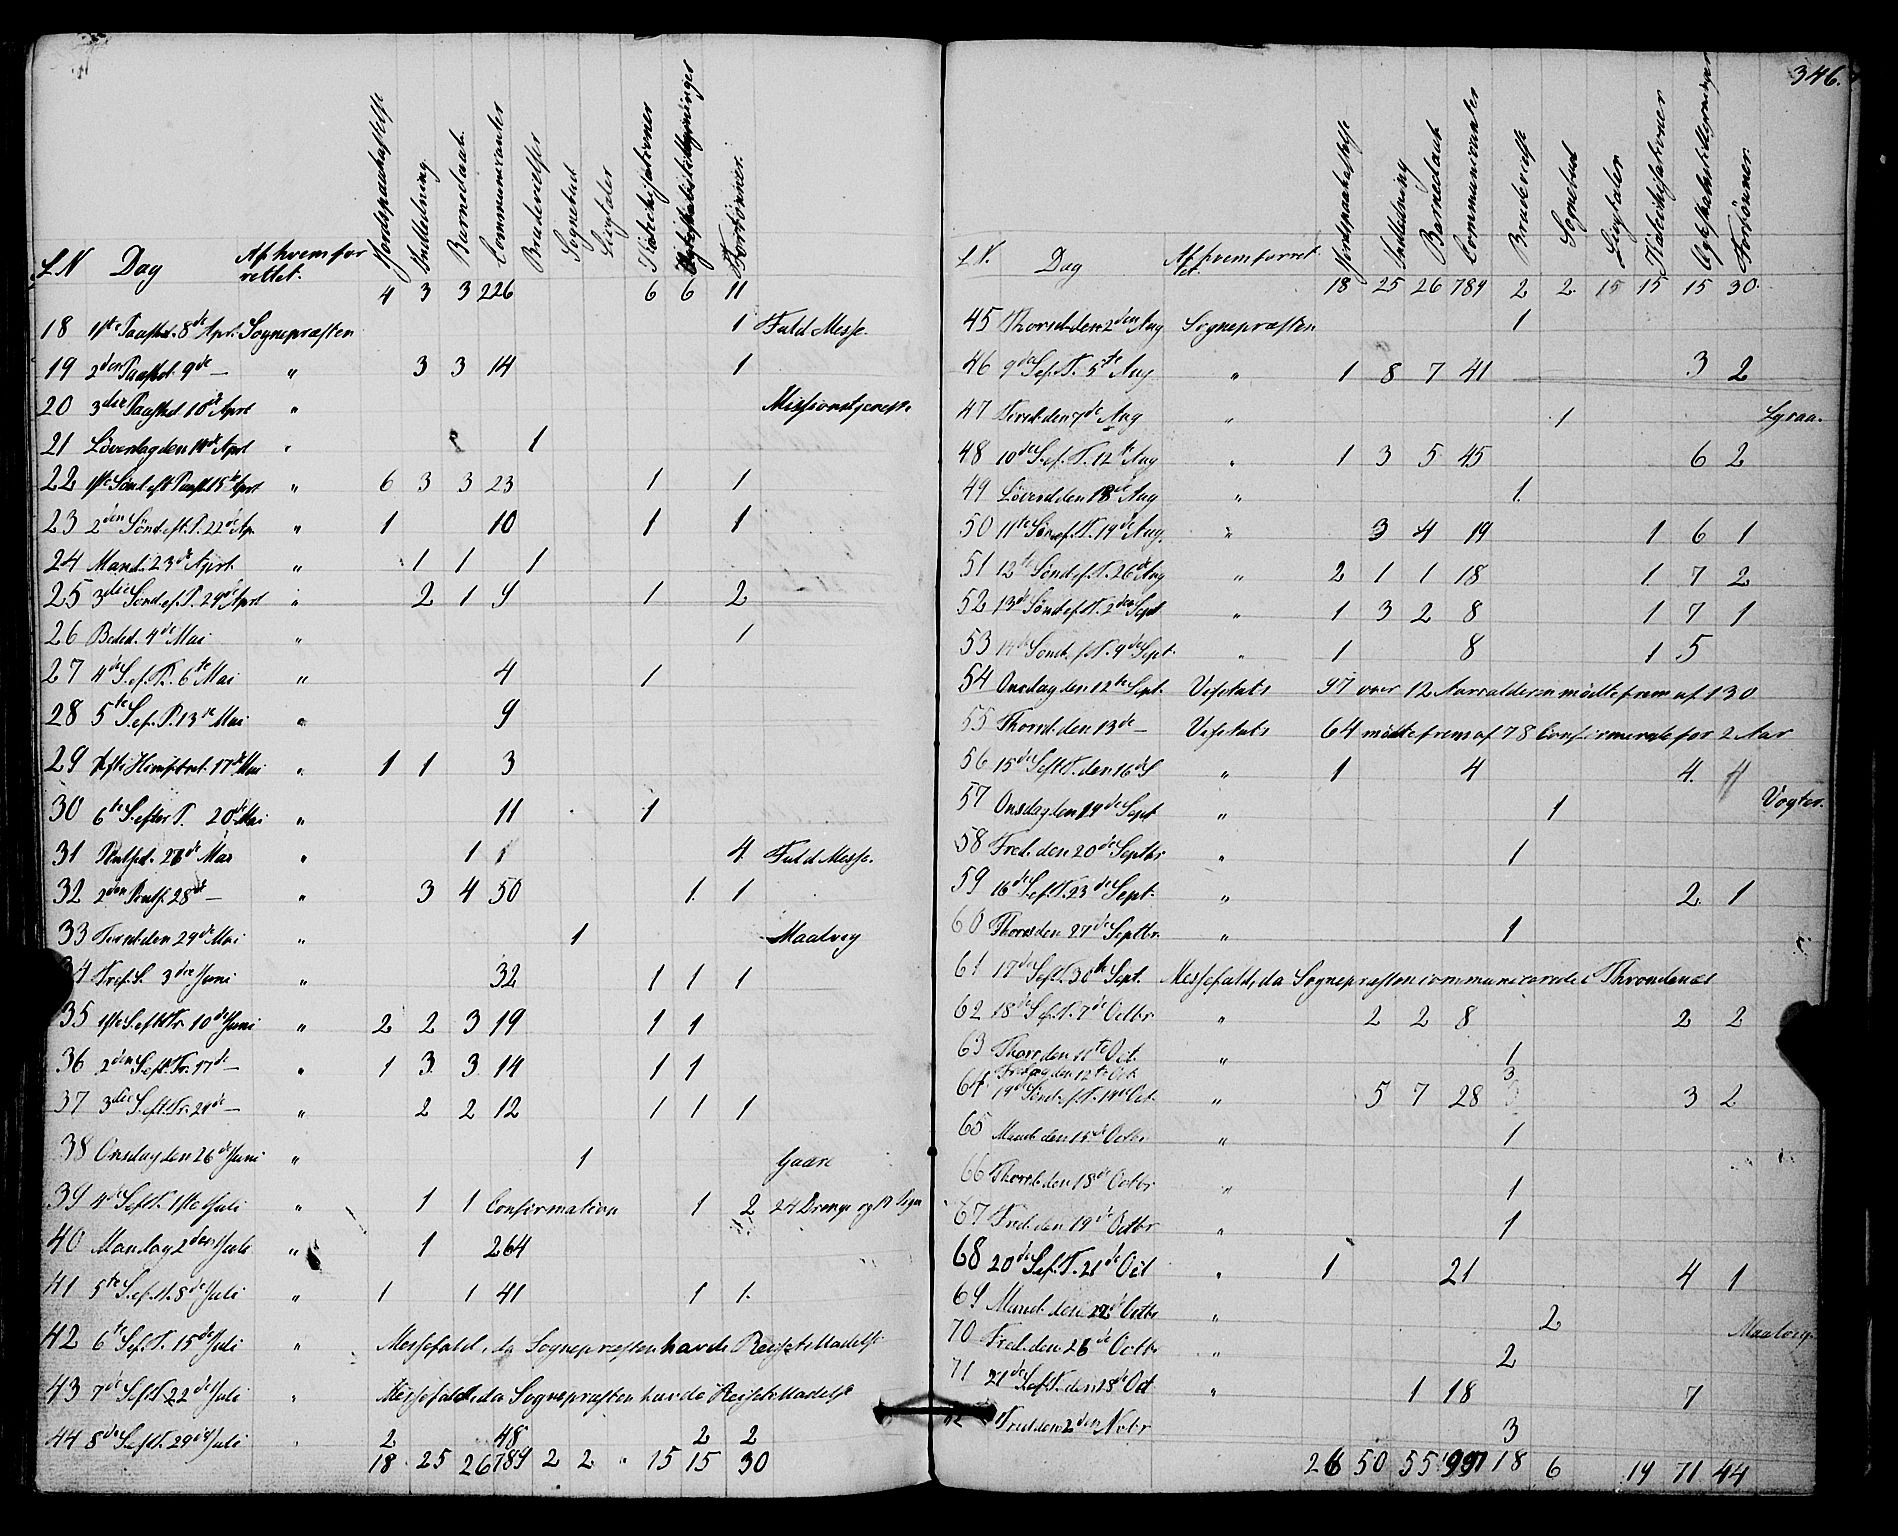 L N Dag Af hvem forrettet. Jordspaakastelse Indledning Barnedaab. Communicanter Brudevielser Sognebud Liigtaler Katechisationer Ægteskabstillysninger Forbönner.
4 3 3 226 6 6 11
18 1ste Paaskd. 8de Apr. Sognepræsten 1 Fald Messe.
19 2den Paaskd. 9de — " 3 3 14 1
20 3die Paaskd 10de Aprl " Missionstjeneste
21 Löverdag den 14de Aprl " 1
22 1ste Sönd eft Paask 15de Aprl " 6 3 3 23 1 1
23 2den Sönd eft. P. 22de Ap. " 1 10 1 1
24 Mand. 23de Aprl. " 1 1 1
25 3die Sönd ef. P. 29de Aprl " 2 1 9 1 2
26 Beded. 4de Mai " 1
27 4de S. ef. P. 6te Mai " 4 1
28 5te S. ef. P. 13de Mai " 9
29 Xsti Himf.t.d. 17de Mai " 1 1 3
30 6te S. efter P. 20de Mai " 11 1
31 Pintsed. 27de Mai " 1 1 4. Fuld Messe.
32 2den Pintsd. 28de — " 3 4 50 1. 1
33 Tirsd. den 29de Mai " 1 Maalvig
34 Tref. S. 3die Juni " 32 1 1 1
35 1ste S. eft Tr. 10de Juni " 2 2 3 19 1 1
36 2den S. eft. Tr. 17de — " 1 3 3 14 1 1
37 3die S. eft. Tr. 24de — " 2 2 12 1 1 1
38 Onsdag den 26de Juni " 1 Gaare
39 4de S. eft. T. 1ste Juli " 1 1 Confirmation 1 2 24 Drenge og Piger
40 Mandag 2den Juli " 1 264
41 5te S. ef. T. 8de Juli " 1 1 41 1 1.
42 6te S. ef. T. 15de Juli " Messefald, da Sognepræsten havde Reisetilladelse
43 7de S. ef. T. 22de Juli " Messefald, da Sognepræsten havde Reisetilladelse
44 8de S. ef. T. 29de Juli " 2 48 2 2
18 25 26 789 2 2 " 15 15 30
346.
L N. Dag Af hvem forrettet. Jordspaakastelse Indledning Barnedaab Communicanter Brudevielse Sognebud Liigtaler Katechisationer Ægteskabstillysninger Forbönner
18 25 26 789 2 2. 15 15 15 30.
45 Thorsd. den 2den Aug Sognepræsten 1
46 9de S. ef. T. 5te Aug " 1 8 7 41 3 2
47 Tirsd. den 7de Aug " 1 Lysaa.
48 10de S. ef. T. 12te Aug " 1 3 5 45 6 2
49 Löverd den 18de Aug " 1.
50 11te Sön. ef. T. 19de Aug. " 3 4 19 1 6 1
51 12te Sönd ef. T. 26de Aug " 2 1 1 18 1 7 2
52 13de Sönd ef. T. 2den Sept " 1 3 2 8 1 7 1
53 14de Sönd. ef. T. 9de Sept. " 1 8 1 5
54 Onsdag den 12te Sept. Visitats 97 over 12 Aars alderen mödte frem af 130
55 Thorsd. den 13de — Visitats 64 mödte frem af 78 Confirmerede for 2 Aar
56 15de S. eft T. den 16de S " 1 4 4. 4
57 Onsdag den 19de Sept " 1 Vogter.
58 Fred. den 20de Septbr " 1
59 16de S. ef. T. 23de Sept. " 2 1
60 Thorsden 27de Septbr. " 1
61 17de S. ef. T. 30te Sept. Messefald, da Sognepræsten communicerede i Throndenæs
62 18de S. ef. T. 7de Octbr " 2 2 8 2 2
63 Thorsden 11te Oct. " 1
Fredag den 12te Oct. 3
64 19de Sönd. ef. T. 14de Oct. " 5 7 28 3 2
65 Mand. den 15de Octbr " 1
66 Thorsd. den 18de Octbr " 1
67 Fred. den 19de Octbr " 1
68 20de S. ef. T. 21de Oct " 1 21 4 1
69 Mand. den 22de Octbr " 2 Maalvig.
70 Fred. den 26de Octbr " 2
71 21de S. ef. T. den 28de Oct " 1 18 7
72 Fred den 2den Nobr 3
26 50 55 18 6 19 71 44